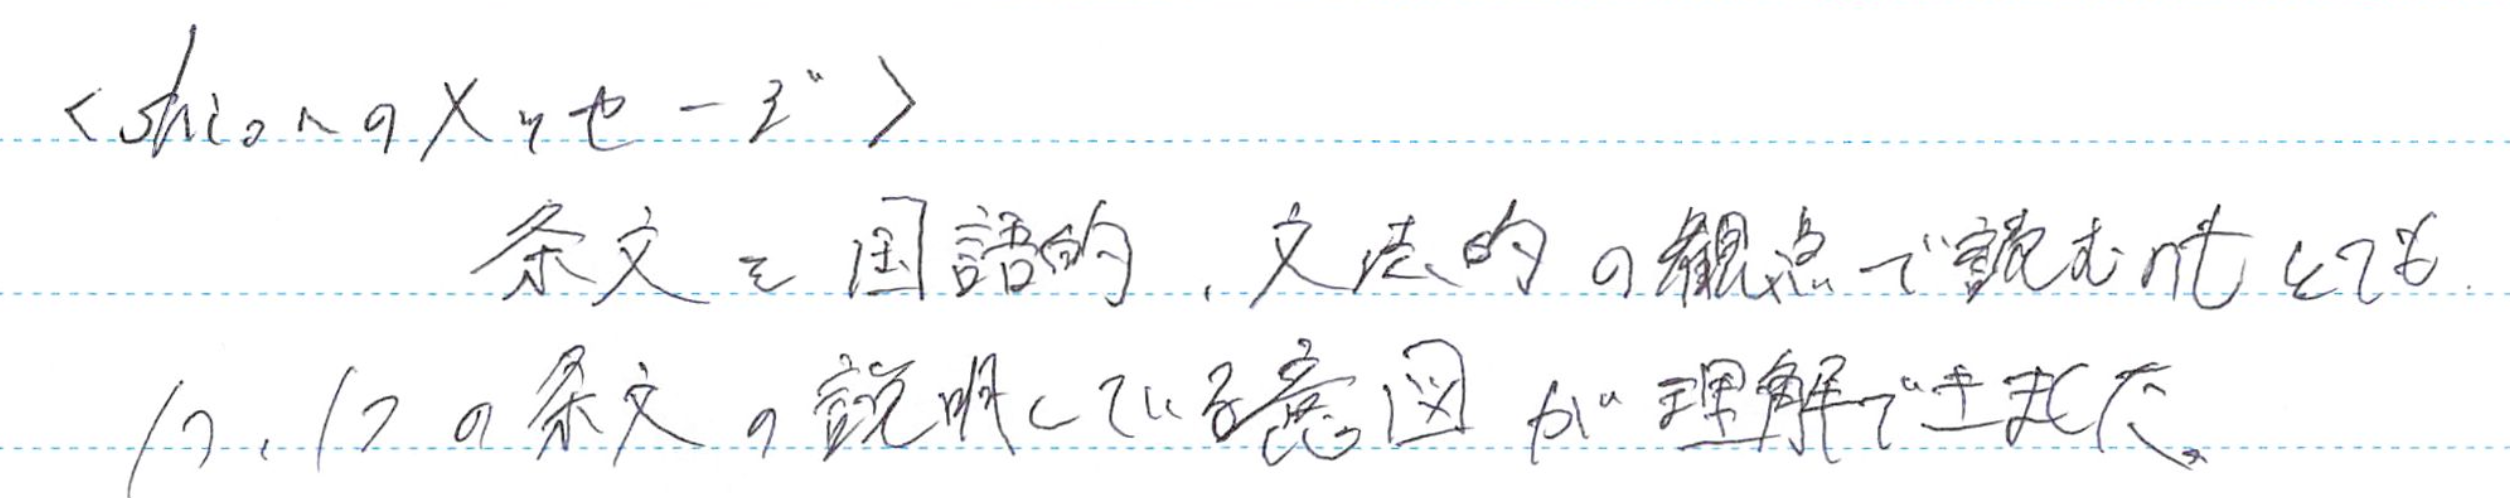 <shionのメッセージ>
条文を国語的、文法的の観点で読むのはとても
1つ、1つの条文の説明している意図が理解できました。